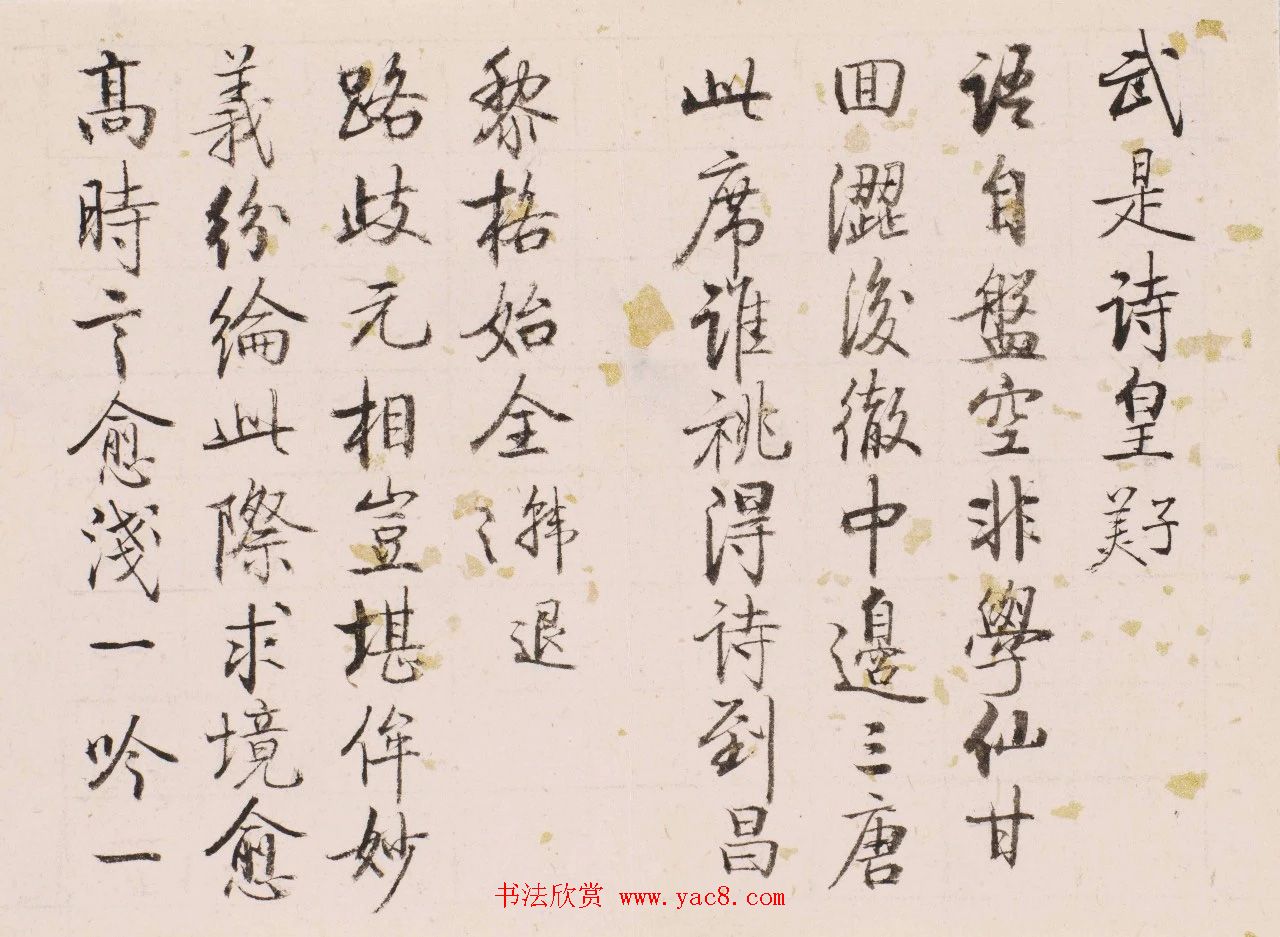 武是詩皇子美
語自盤空非學仙甘
囬澀後徹中邊三唐
此席誰祧得詩到昌
黎格始全韓退之
路歧元相豈堪侔妙
義紛綸此際求境愈
高時言愈淺一吟一
书法欣赏 www.yac8.com